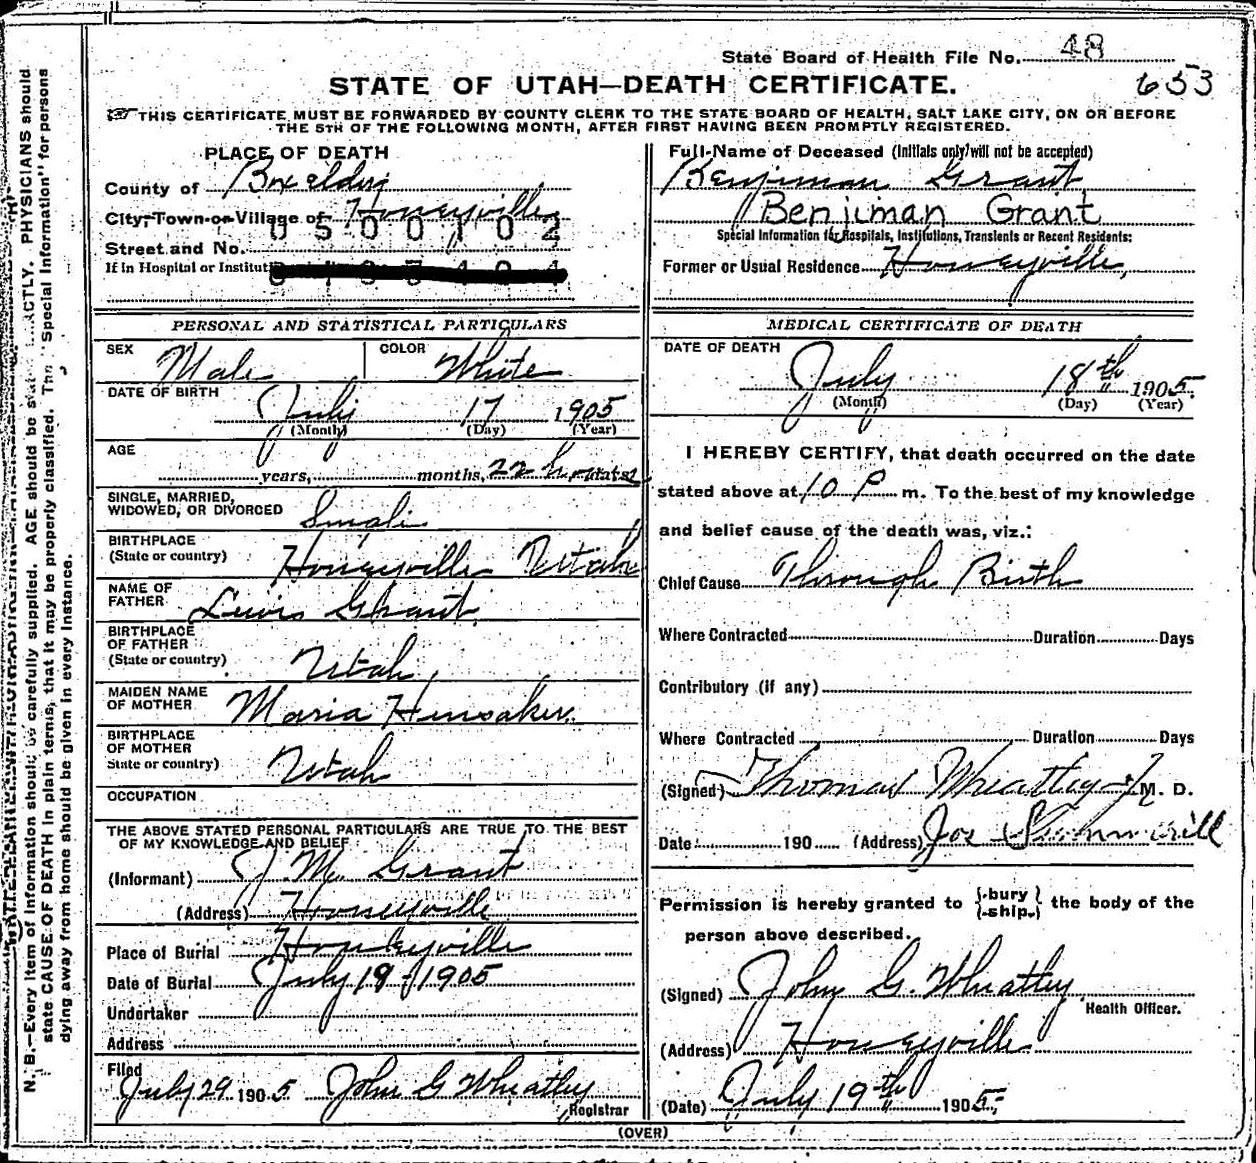 State Board of Health File No. 48
STATE OF UTAH—DEATH CERTIFICATE.
653
THIS CERTIFICATE MUST BE FORWARDED BY COUNTY CLERK TO THE STATE BOARD OF HEALTH, SALT LAKE CITY, ON OR BEFORE
THE 5TH OF THE FOLLOWING MONTH, AFTER FIRST HAVING BEEN PROMPTLY REGISTERED.
PLACE OF DEATH
County of Boxelder
City, Town or Village of Honeyville
0500102
Street and No.
If in Hospital or Institut
Full Name of Deceased (Initials only will not be accepted)
Benjiman Grant
Benjiman Grant
Special Information for Hospitals, Institutions, Transients or Recent Residents:
Former or Usual Residence Honeyville,
PERSONAL AND STATISTICAL PARTICULARS
SEX Male COLOR White
DATE OF BIRTH
July 17 1905
(Month) (Day) (Year)
AGE
years, months, 22 hours
SINGLE, MARRIED,
WIDOWED, OR DIVORCED
BIRTHPLACE
(State or country) Honeyville Utah
NAME OF
FATHER Lewis Grant
BIRTHPLACE
OF FATHER
(State or country) Utah,
MAIDEN NAME
OF MOTHER Maria Hunsaker
BIRTHPLACE
OF MOTHER
State or country) Utah
OCCUPATION
THE ABOVE STATED PERSONAL PARTICULARS ARE TRUE TO THE BEST
OF MY KNOWLEDGE AND BELIEF
(Informant) J. M. Grant
(Address) Honeyville
Place of Burial Honeyville
Date of Burial July 19 - 1905
Undertaker
Address
Filed
July 29 1905 John G Wheatley
Registrar
MEDICAL CERTIFICATE OF DEATH
DATE OF DEATH
July 18th 1905.
(Month) (Day) (Year)
I HEREBY CERTIFY, that death occurred on the date
stated above at 10 P m. To the best of my knowledge
and belief cause of the death was, viz.:
Chief Cause Through Birth
Where Contracted Duration Days
Contributory (if any)
Where Contracted Duration Days
(Signed) Thomas Wheatley M. D.
Date 190 (Address)
Permission is hereby granted to {bury / ship} the body of the
person above described.
(Signed) John G. Wheatley
Health Officer.
(Address) Honeyville
(Date) July 19th 1905
(OVER)
N. B.—Every item of information should be carefully supplied. AGE should be EXACTLY. PHYSICIANS should
state CAUSE OF DEATH in plain terms, that it may be properly classified. The "Special Information" for persons
dying away from home should be given in every instance.